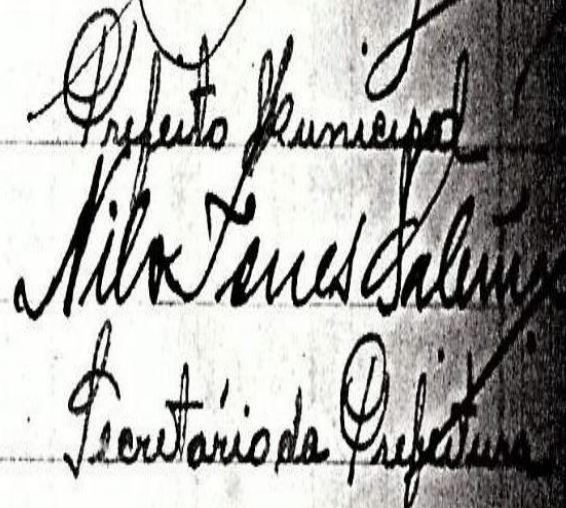 Prefeito Municipal
Nilo Torres
Secretário da Prefeitura